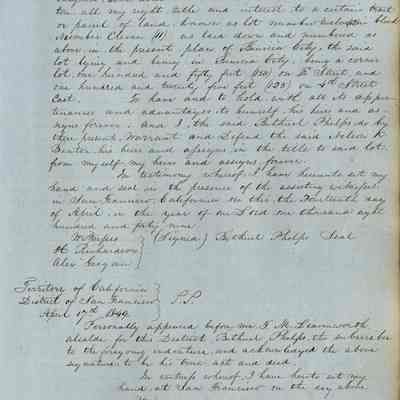 ton all my right title and interest to a certain tract
or parcel of land, known as lot number in block
Number Eleven (11) as laid down and numbered as
above in the present place of Benicia City, the said
lot lying and being in Benicia City, being a corner
lot, one hundred and fifty feet (150) on Street and
one hundred and twenty five feet (125) on 4th Street
East. To have and to hold, with all its appur
tenances and advantages, to himself his heirs and as-
signs forever. And I the said Bethuel Phelps do by
these presents Warrant and Defend the said
his heirs and assigns in the title to said lot,
from myself my heirs and assigns, forever.
In testimony whereof I have hereunto set my
hand and seal in the presence of the assisting witnesses
in San Francisco, California on this the Fourteenth day
of April in the year of our Lord one thousand eight
hundred and forty nine
(Signed) Bethuel Phelps Seal
H Richardson
Alex
Territory of California
District of San Francisco } S.S.
April 17th 1849
Personally appeared before me T. M. Leavenworth
alcalde for this District Bethuel Phelps, the subscriber
to the foregoing indenture, and acknowledged the above
signature to be his true act and deed.
In witness whereof I have hereto set my
hand, at San Francisco on the day above